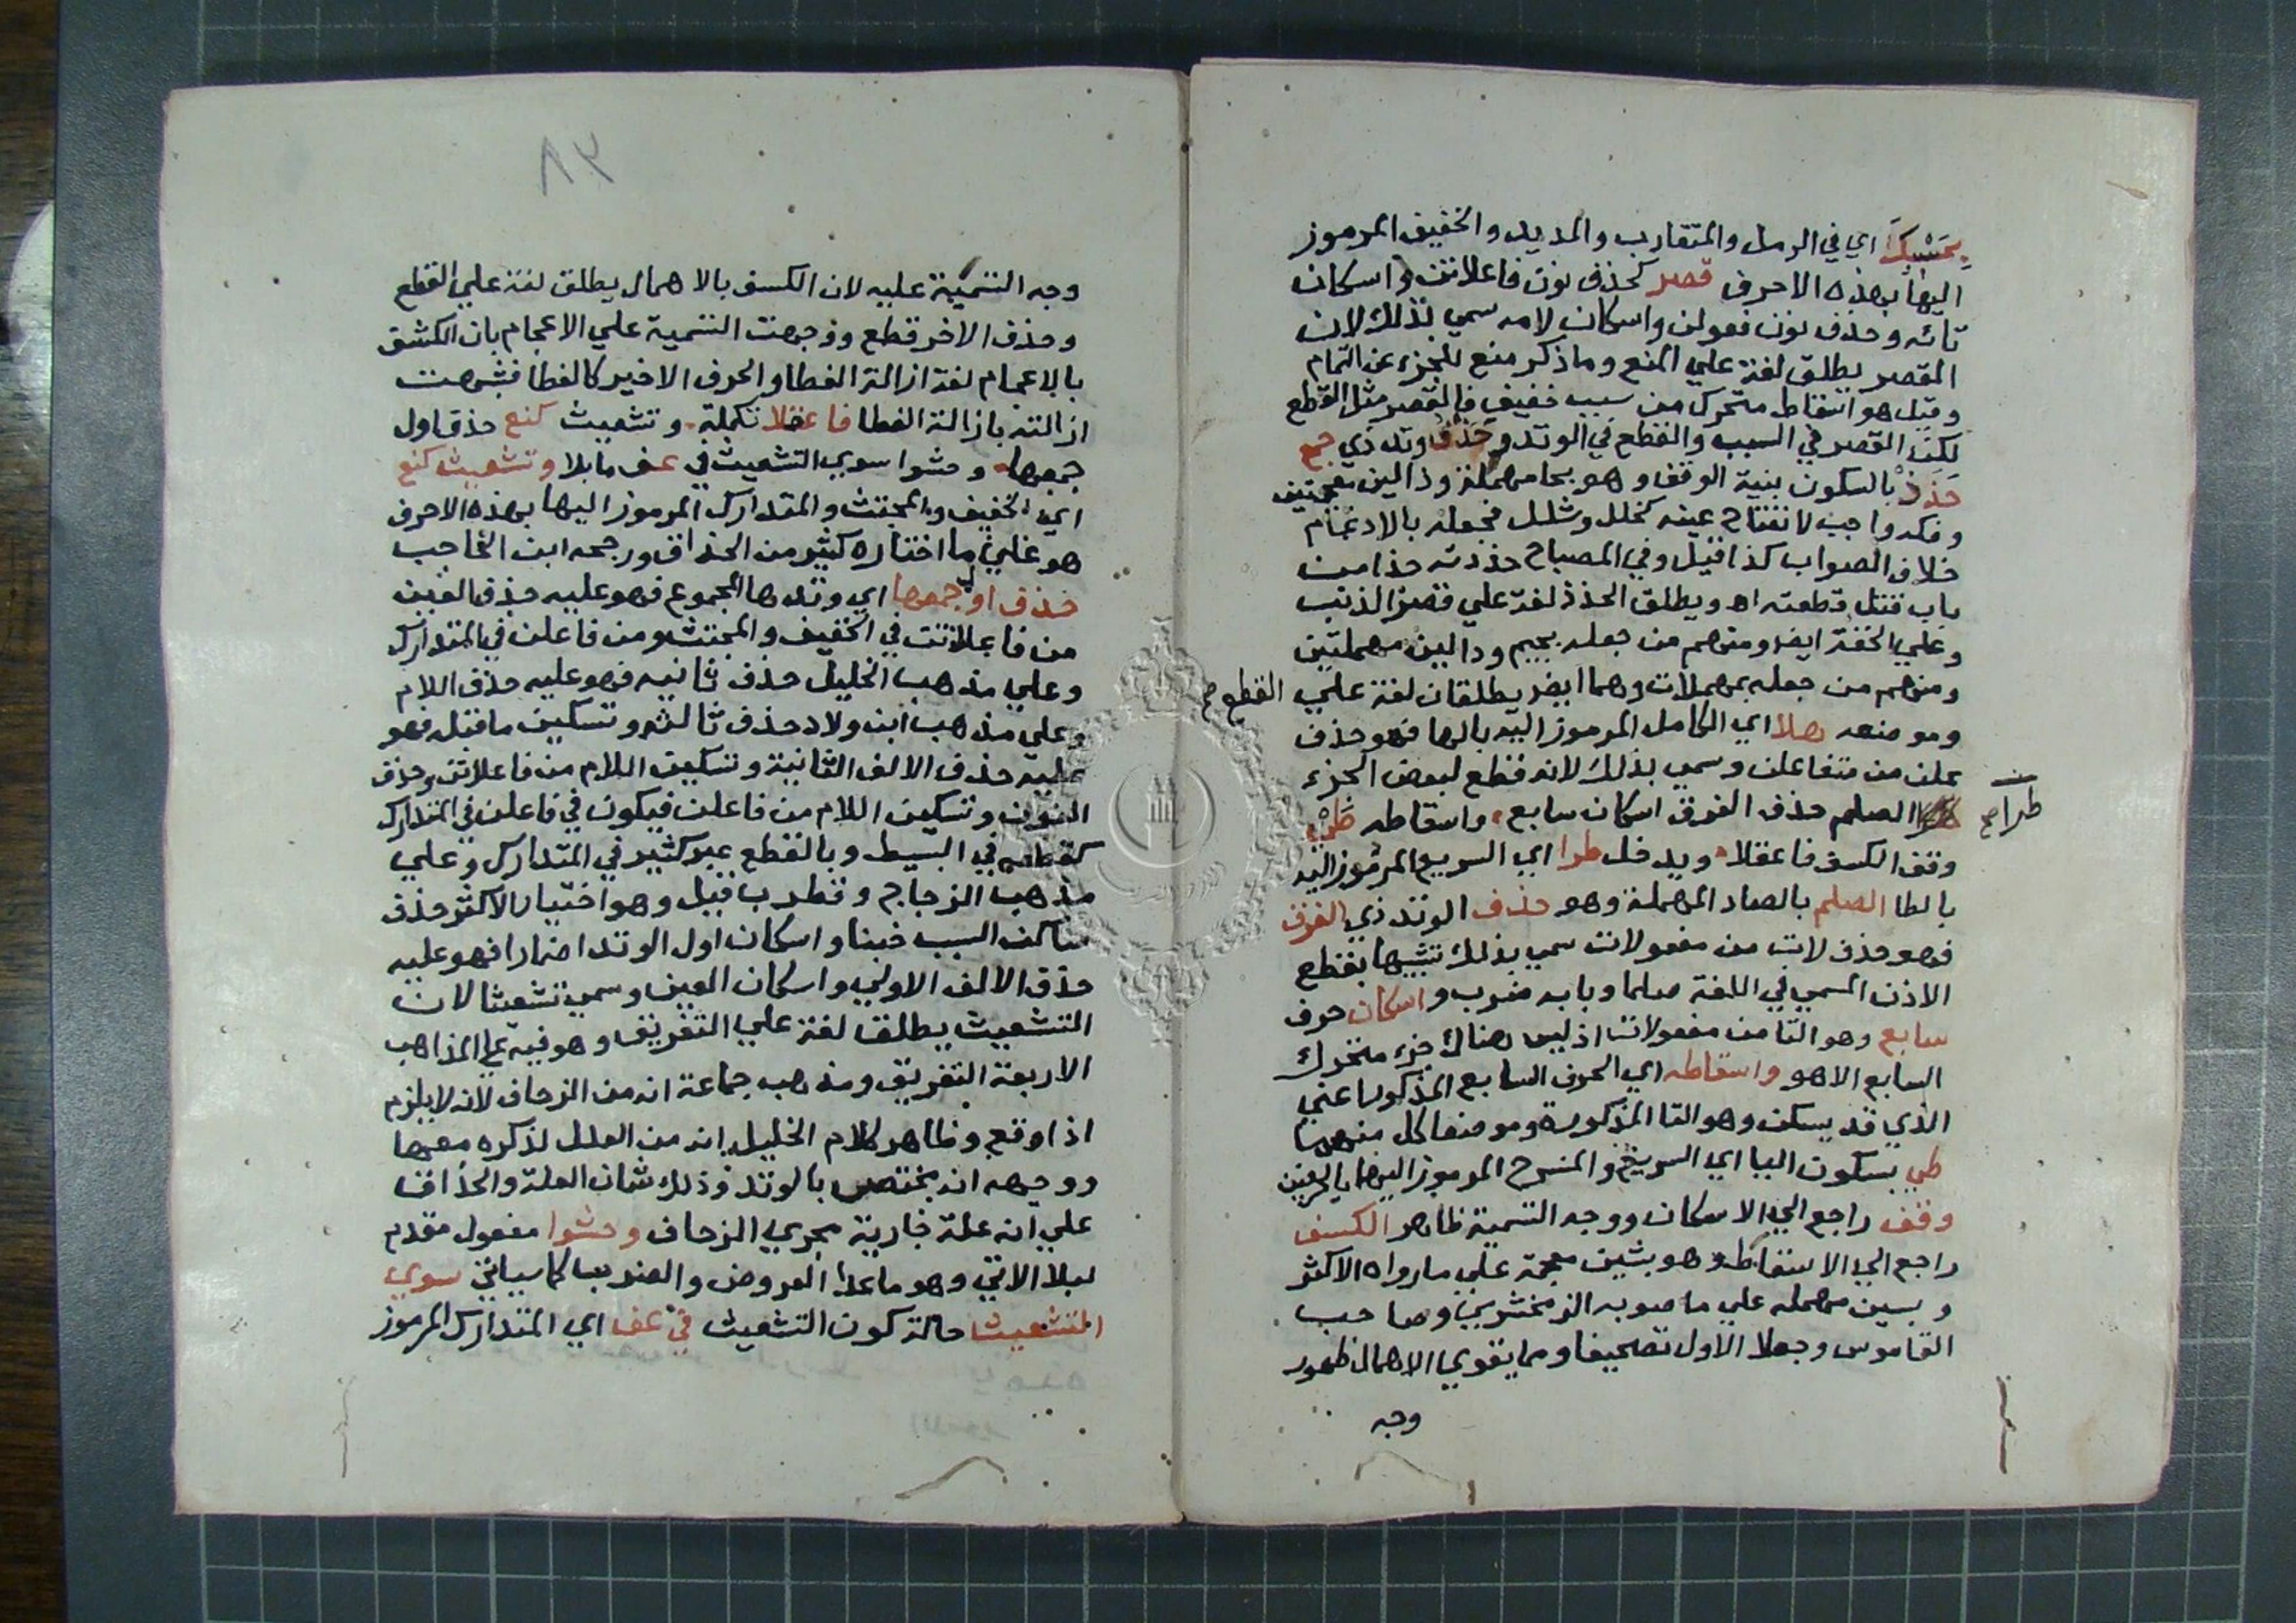 بحسبك اي في الرمل والمتقارب والمديد والخفيف المرموز
اليها بهذه الاحرف قصر كحذف نون فاعلاتن واسكان
تائه وحذف نون فعولن واسكان لامه سمي بذلك لان
القصر يطلق لغة علي المنع وما ذكر منع للجزء عن التمام
وقيل هو اسقاط متحرك من سبب خفيف فالقصر مثل القطع
لكن القصر في السبب والقطع في الوتد وحذف وتد ذي جمع
حَذَذْ بالسكون بنية الوقف وهو بحا مهملة وذالين معجمتين
وفكه واجب لانفتاح عينه كخلل وشلل فجعله بالادغام
خلاف الصواب كذا قيل وفي المصباح حذذته حذا من
باب قتل قطعته اه ويطلق الحذذ لغة علي قصر الذنب
وعلي الخفة ايضا ومنهم من جعله بجيم ودالين مهملتين
ومنهم من جعله بمهملات وهما ايضا يطلقان لغة علي القطع صح
وموضعه هلا اي الكامل المرموز اليه بالها فهو حذف
علن من متفاعلن وسمي بذلك لانه قطع لبعض الجزء
الصلم حذف الفرق اسكان سابع واسقاطه طي
طرا صح
وقف الكسف فاعقلا ويدخل طرا اي السريع المرموز اليه
بالطا الصلم بالصاد المهملة وهو حذف الوتد ذي الفرق
فهو حذف لات من مفعولات سمي بذلك تشبيها بقطع
الاذن المسمي في اللغة صلما وبابه ضرب واسكان حرف
سابع وهو التا من مفعولات اذ ليس هناك جزء متحرك
السابع الا هو واسقاطه اي الحرف السابع المذكور اعني
الذي قد يسكن وهو التا المذكورة وموضعا كل منهما
طي بسكون اليا اي السريع والمنسرح المرموز اليهما بالحرفين
وقف راجع الي الاسكان ووجه التسمية ظاهر الكسف
راجع الي الاسقاط وهو بشين معجمة علي ما رواه الاكثر
وبسين مهملة علي ما صوبه الزمخشري وصاحب
القاموس وجعلا الاول تصحيفا ومما يقوي الاهمال ظهور
وجه
٣٨
وجه التسمية عليه لان الكسف بالاهمال يطلق لغة علي القطع
وحذف الاخر قطع ووجهت التسمية علي الاعجام بان الكشف
بالاعجام لغة ازالة الغطا والحرف الاخير كالغطا فشبهت
ازالته بازالة الغطا فاعقلا تكملة وتشعيث كنع حذف اول
جمعها وحشوا سوي التشعيث في عف ما بلا وتشعيث كنع
اي الخفيف والمجتث والمتدارك المرموز اليها بهذه الاحرف
هو علي ما اختاره كثير من الحذاق ورجحه ابن الحاجب
حذف اول جمعها اي وتدها المجموع فهو عليه حذف العين
من فاعلاتن في الخفيف والمجتث ومن فاعلن في المتدارك
وعلي مذهب الخليل حذف ثانيه فهو عليه حذف اللام
وعلي مذهب ابن ولاد حذف ثالثه وتسكين ما قبله فهو
عليه حذف الالف الثانية وتسكين اللام من فاعلاتن وحذف
النون وتسكين اللام من فاعلن فيكون في فاعلن في المتدارك
كقطعه في البسيط وبالقطع عبر كثير في المتدارك وعلي
مذهب الزجاج وقطرب قيل وهو اختيار الاكثر حذف
ساكن السبب خبنا واسكان اول الوتد اضمارا فهو عليه
حذف الالف الاولي واسكان العين وسمي تشعيثا لان
التشعيث يطلق لغة علي التفريق وهو فيه علي المذاهب
الاربعة التفريق ومذهب جماعة انه من الزحاف لانه لا يلزم
اذا وقع وظاهر كلام الخليل انه من العلل لذكره معها
ووجهه انه يختص بالوتد وذلك شان العلة والحذاق
علي انه علة جارية مجري الزحاف وحشوا مفعول مقدم
لبلا الاتي وهو ما عدا العروض والضرب كما سياتي سوي
التشعيث حالة كون التشعيث في عف اي المتدارك المرموز